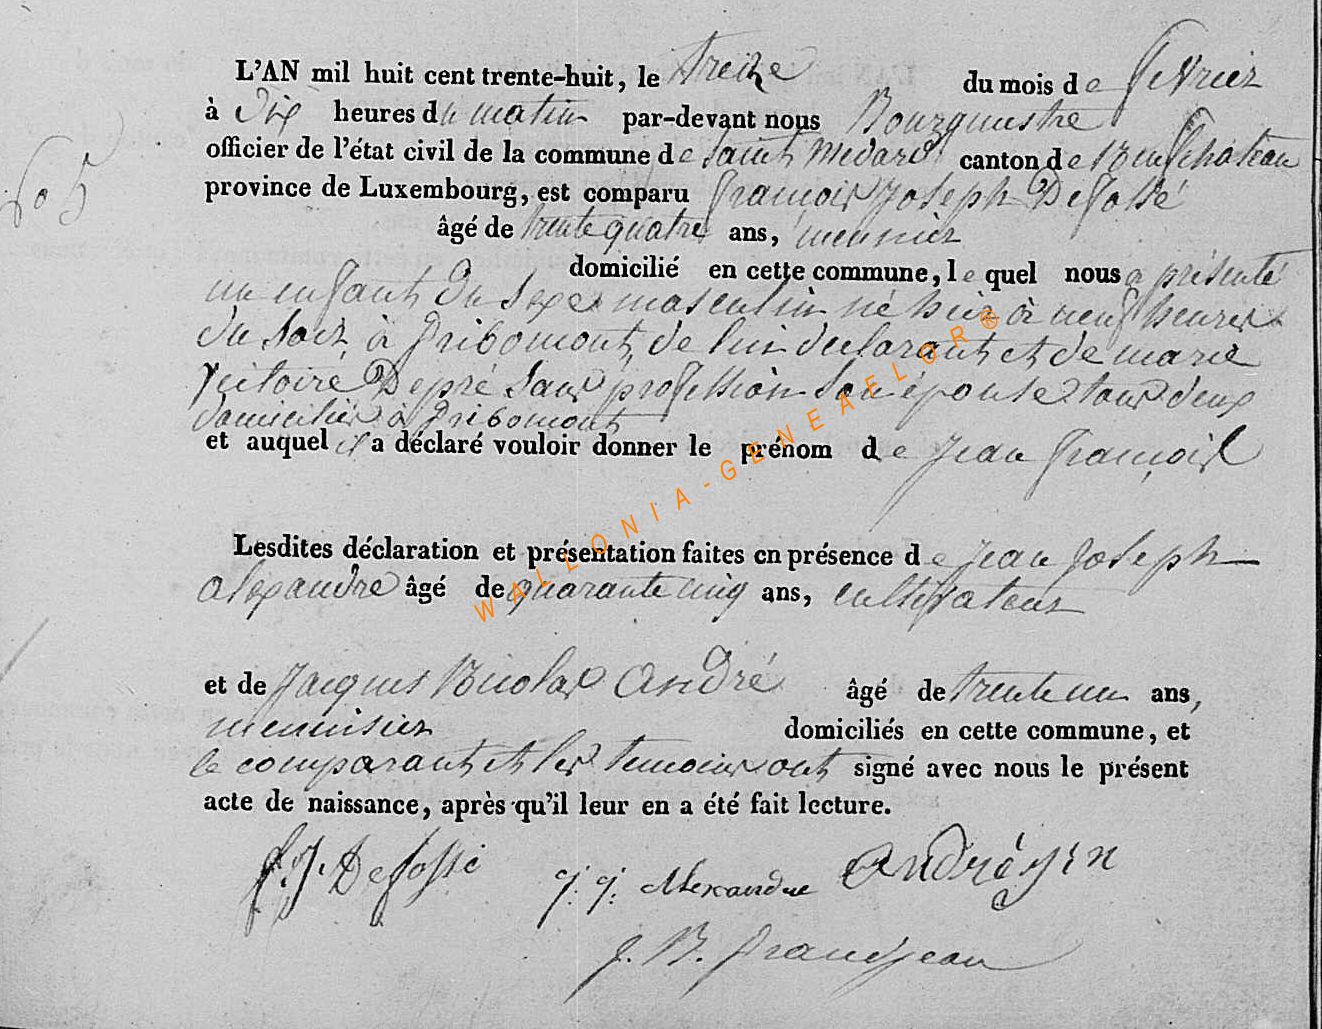 L'AN mil huit cent trente-huit, le treize du mois de fevrier
à dix heures du matin par-devant nous Bourgmestre
officier de l'état civil de la commune de saint Medard canton de Neufchateau
province de Luxembourg, est comparu françois Joseph Defossé
âgé de trente quatre ans, meunier
domicilié en cette commune, lequel nous a présenté
un enfant du sexe masculin né hier à neuf heures
du soir, à gribomont, de lui declarant et de marie
Victoire Depré sans profession son épouse tous deux
domiciliés à gribomont
et auquel il a déclaré vouloir donner le prénom de Jean françois
Lesdites déclaration et présentation faites en présence de Jean Joseph
alexandre âgé de quarante cinq ans, cultivateur
et de Jacques Nicolas André âgé de trente un ans,
menuisier domiciliés en cette commune, et
le comparant et les temoins ont signé avec nous le présent
acte de naissance, après qu'il leur en a été fait lecture.
f. J. Defossé J. J. Alexandre André
J. B. grandjean
WALLONIA-GENEAELOR®